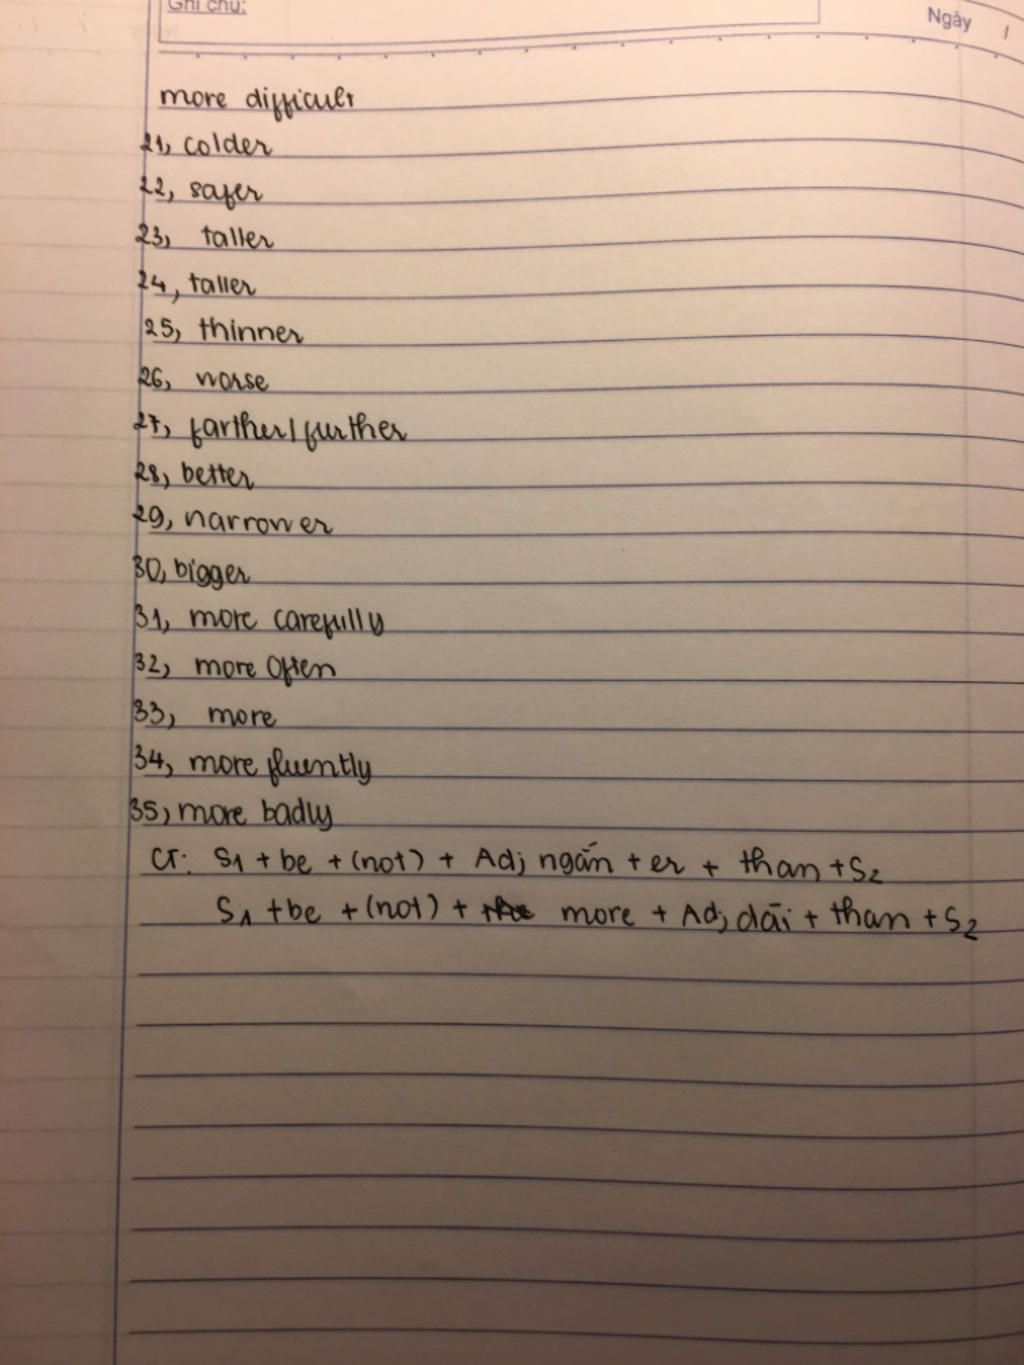 Ghi chú:
Ngày /
more difficult
21, colder
22, safer
23, taller
24, taller
25, thinner
26, worse
27, farther/further
28, better
29, narrower
30, bigger
31, more carefully
32, more often
33, more
34, more fluently
35, more badly
CT: S1 + be + (not) + Adj ngắn + er + than + S2
S1 + be + (not) + more + Adj dài + than + S2